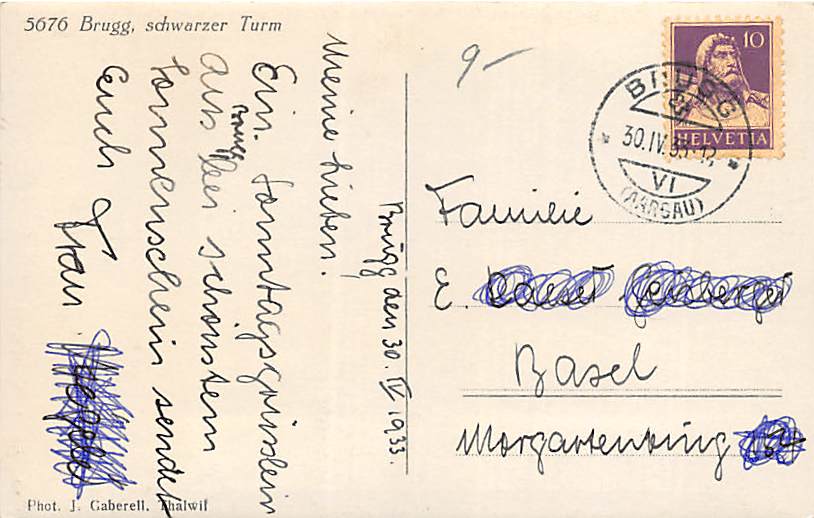 5676 Brugg, schwarzer Turm
Meine Lieben!
Ein Sonntagsgrüsslein
aus Brugg bei schönstem
Sonnenschein sendet
Euch Frau
Brugg den 30. IV 1933.
9-
10
HELVETIA
BRUGG
30.IV.33
VI
(AARGAU)
Familie
E.
Basel
Morgartenring
Phot. J. Gaberell, Thalwil